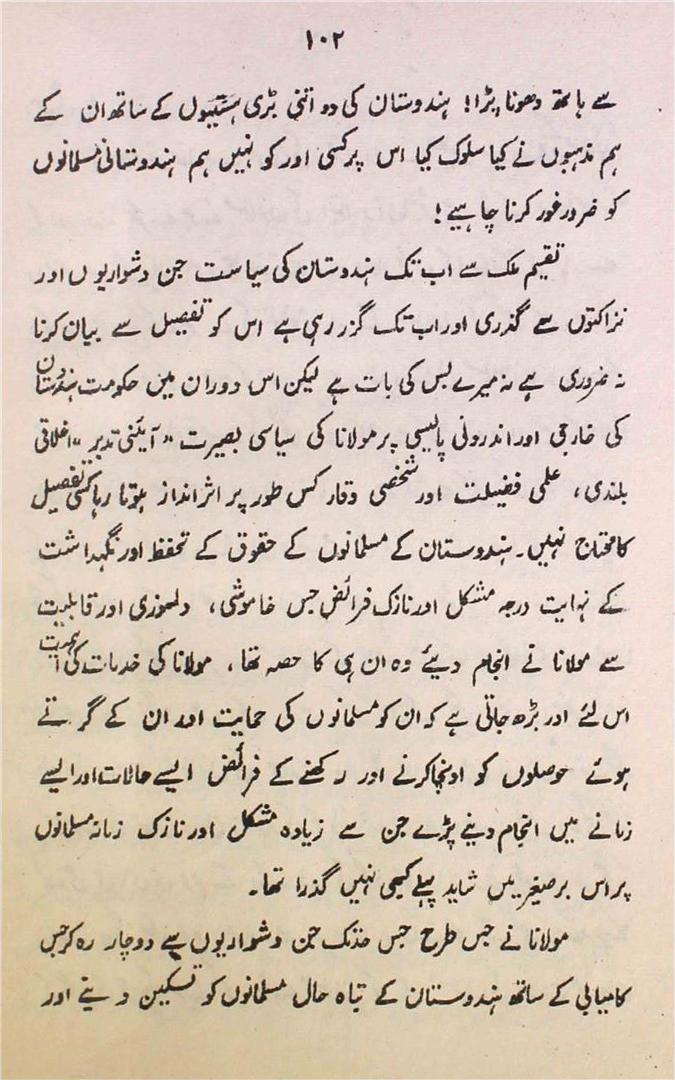 ۱۰۲
سے ہاتھ دھونا پڑا! ہندوستان کی دو اتنی بڑی ہستیوں کے ساتھ ان کے
ہم مذہبوں نے کیا سلوک کیا اس پر کسی اور کو نہیں ہم ہندوستانی مسلمانوں
کو ضرور غور کرنا چاہیے!
تقسیم ملک سے اب تک ہندوستان کی سیاست جن دشواریوں اور
نزاکتوں سے گذری اور اب تک گزر رہی ہے اس کو تفصیل سے بیان کرنا
نہ ضروری ہے نہ میرے بس کی بات ہے لیکن اس دوران میں حکومت ہندوستان
کی خارجی اور اندرونی پالیسی پر مولانا کی سیاسی بصیرت، آئینی تدبر، اخلاقی
بلندی، علمی فضیلت اور شخصی وقار کس طور پر اثر انداز ہوتا رہا کسی تفصیل
کا محتاج نہیں۔ ہندوستان کے مسلمانوں کے حقوق کے تحفظ اور نگہداشت
کے نہایت درجہ مشکل اور نازک فرائض جس خاموشی، دلسوزی اور قابلیت
سے مولانا نے انجام دیئے وہ ان ہی کا حصہ تھا، مولانا کی خدمات کی اہمیت
اس لئے اور بڑھ جاتی ہے کہ ان کو مسلمانوں کی حمایت اور ان کے گرتے
ہوئے حوصلوں کو اونچا کرنے اور رکھنے کے فرائض ایسے حالات اور ایسے
زمانے میں انجام دینے پڑے جن سے زیادہ مشکل اور نازک زمانہ مسلمانوں
پر اس برصغیر میں شاید پہلے کبھی نہیں گذرا تھا۔
مولانا نے جس طرح جس حد تک جن دشواریوں سے دوچار رہ کر جس
کامیابی کے ساتھ ہندوستان کے تباہ حال مسلمانوں کو تسکین دینے اور